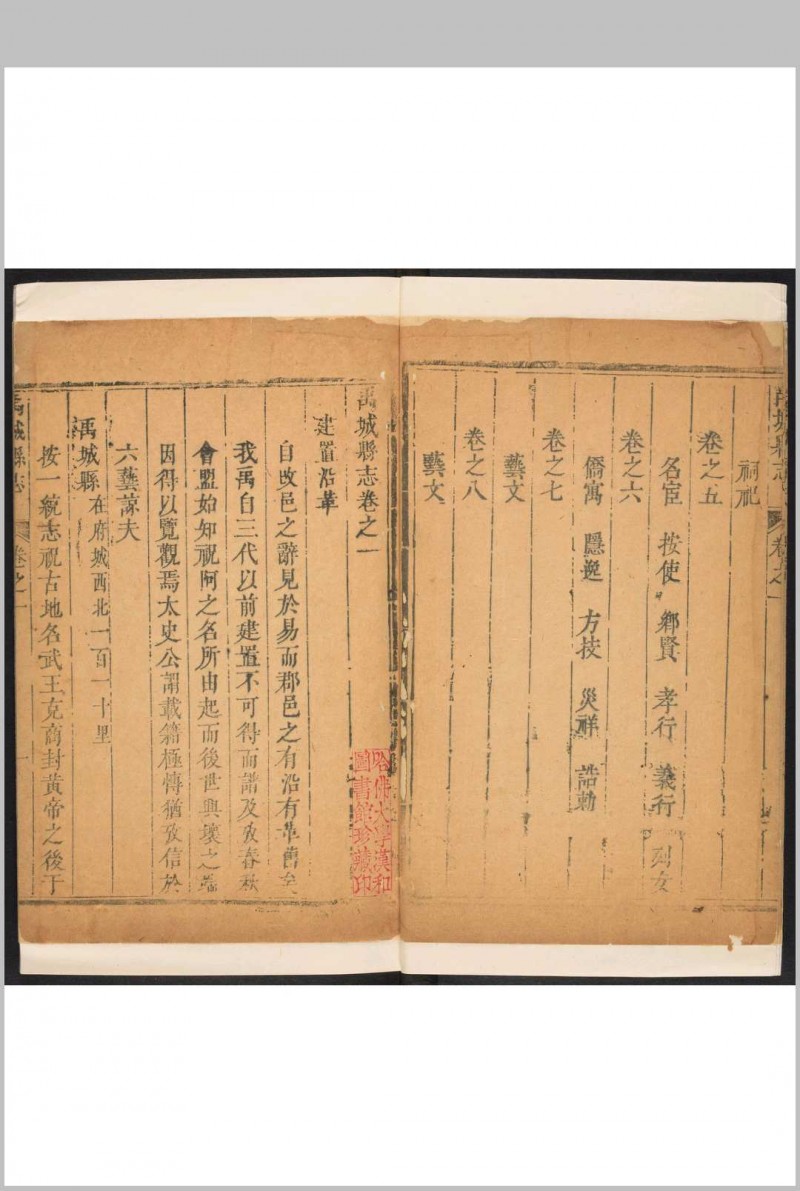 禹城縣志
卷之一
祠祀
卷之五
名宦 按使 鄉賢 孝行 義行 列女
卷之六
僑寓 隱逸 方技 災祥 誥勅
卷之七
藝文
卷之八
藝文
哈佛大學漢和
圖書館珍藏印
禹城縣志卷之一
建置沿革
自改邑之辭見於易而郡邑之有沿有革舊矣
我禹自三代以前建置不可得而譜及攷春秋
會盟始知祝阿之名所由起而後世興壞之端
因得以覽觀焉太史公謂載籍極愽猶攷信於
六藝諒夫
禹城縣 在府城西北一百一十里
按一統志祝古地名武王克商封黃帝之後于
禹城縣志
卷之一
一